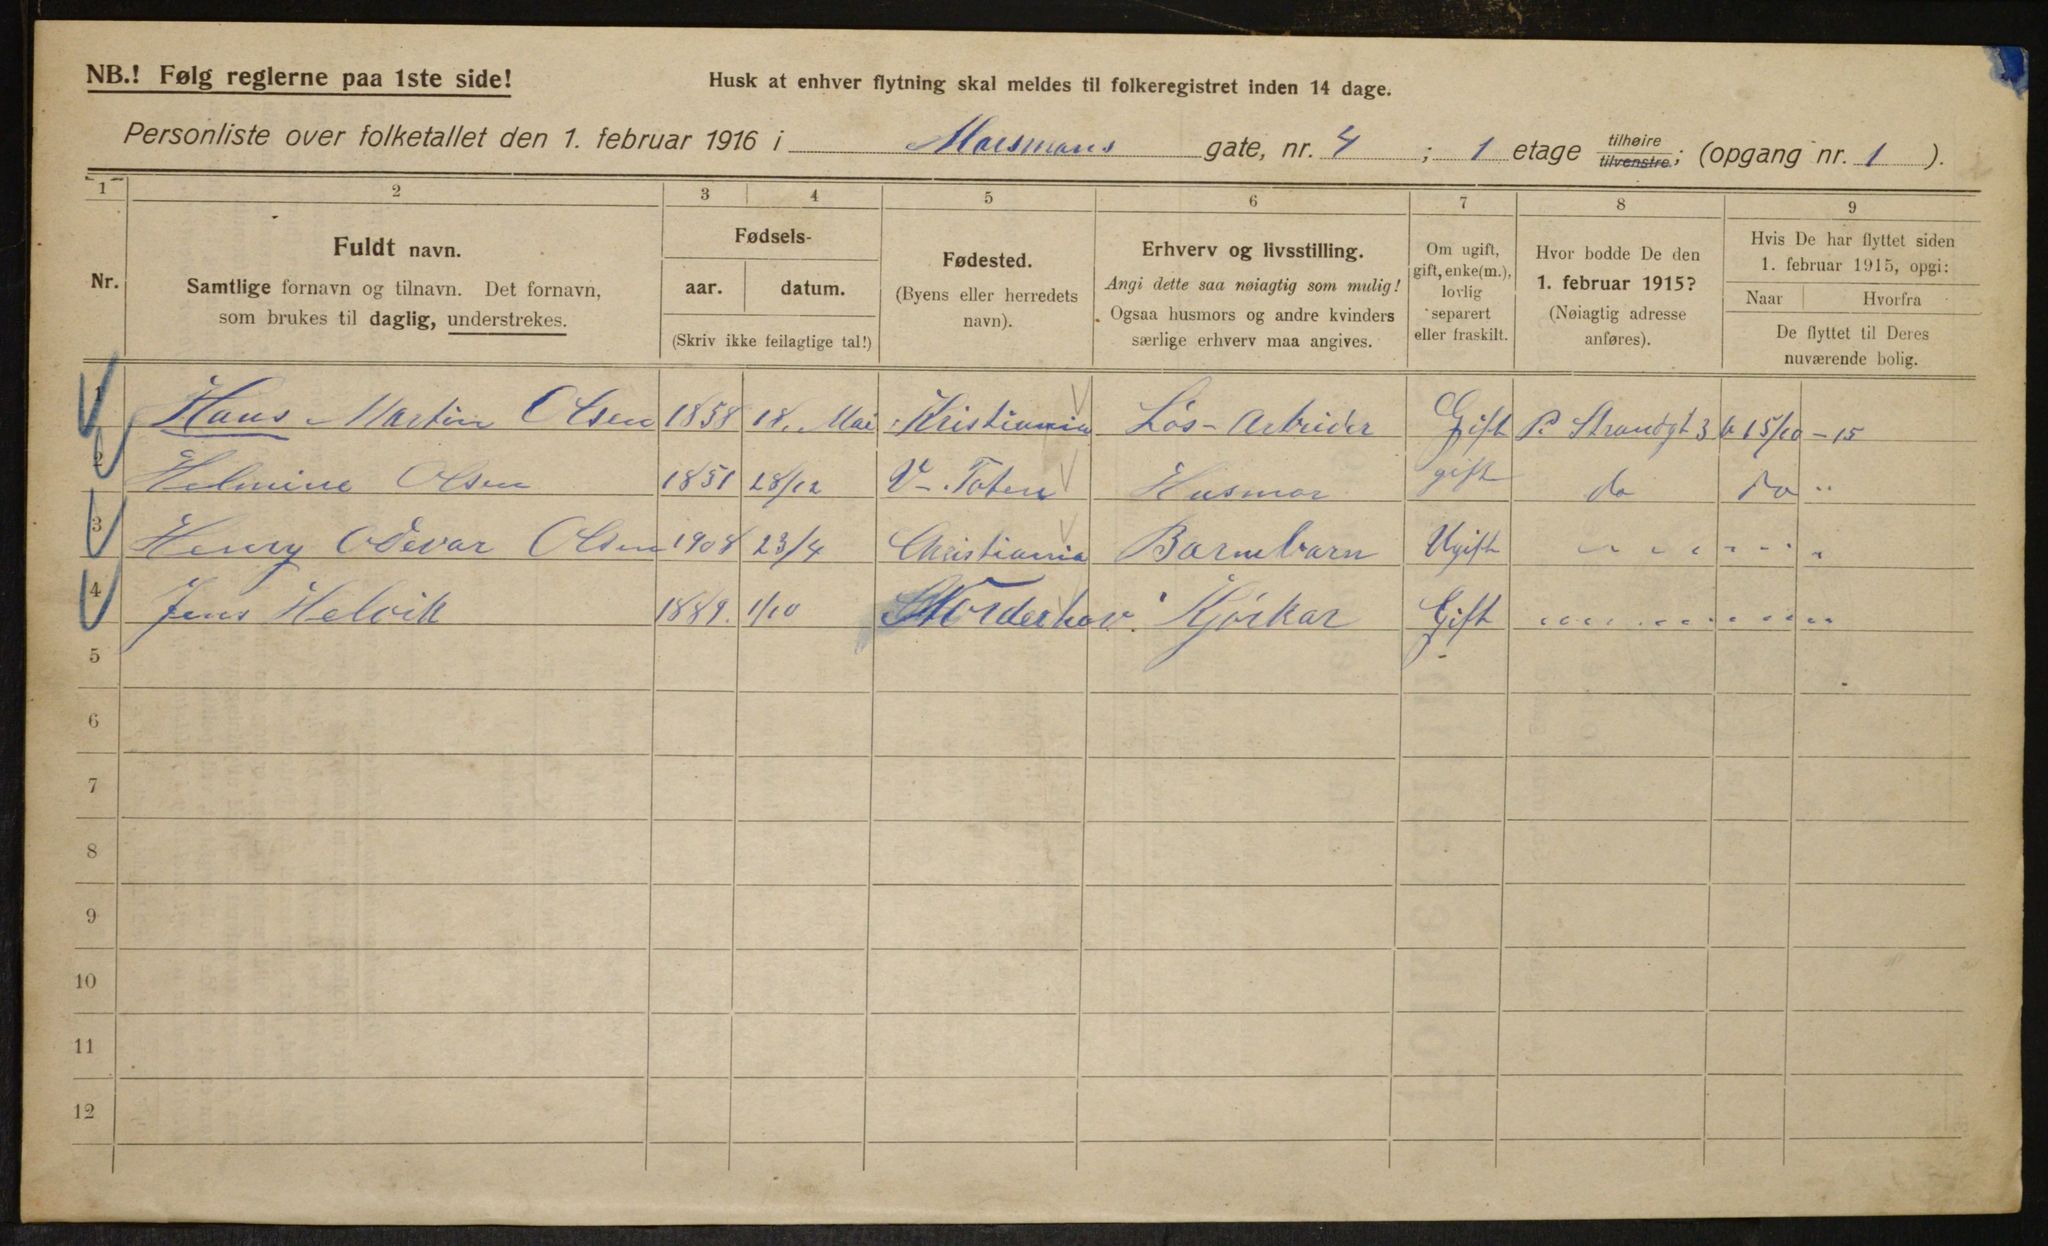 NB.! Følg reglerne paa 1ste side!
Husk at enhver flytning skal meldes til folkeregistret inden 14 dage.
Personliste over folketallet den 1. februar 1916 i Maismans gate, nr. 4; 1 etage tilhøire tilvenstre; (opgang nr. 1).
1 2 3 4 5 6 7 8 9
Nr.
Fuldt navn.
Samtlige fornavn og tilnavn. Det fornavn,
som brukes til daglig, understrekes.
Fødsels-
aar. datum.
(Skriv ikke feilagtige tal!)
Fødested.
(Byens eller herredets
navn).
Erhverv og livsstilling.
Angi dette saa nøiagtig som mulig!
Ogsaa husmors og andre kvinders
særlige erhverv maa angives.
Om ugift,
gift, enke(m.),
lovlig
separert
eller fraskilt.
Hvor bodde De den
1. februar 1915?
(Nøiagtig adresse
anføres).
Hvis De har flyttet siden
1. februar 1915, opgi:
Naar Hvorfra
De flyttet til Deres
nuværende bolig.
1 Hans Martin Olsen 1858 18. Mai Kristiania Løs-Arbeider Gift P. Strandgt 36 15/10-15
2 Helmine Olsen 1851 28/12 V-Toten Husmor gift do do "
3 Henry Odevar Olsen 1908 23/4 Christiania Barnebarn Ugift " " " " " " "
4 Jens Helvik 1889. 1/10 Norderhov. Kjørkar Gift " " " " " " " "
5
6
7
8
9
10
11
12